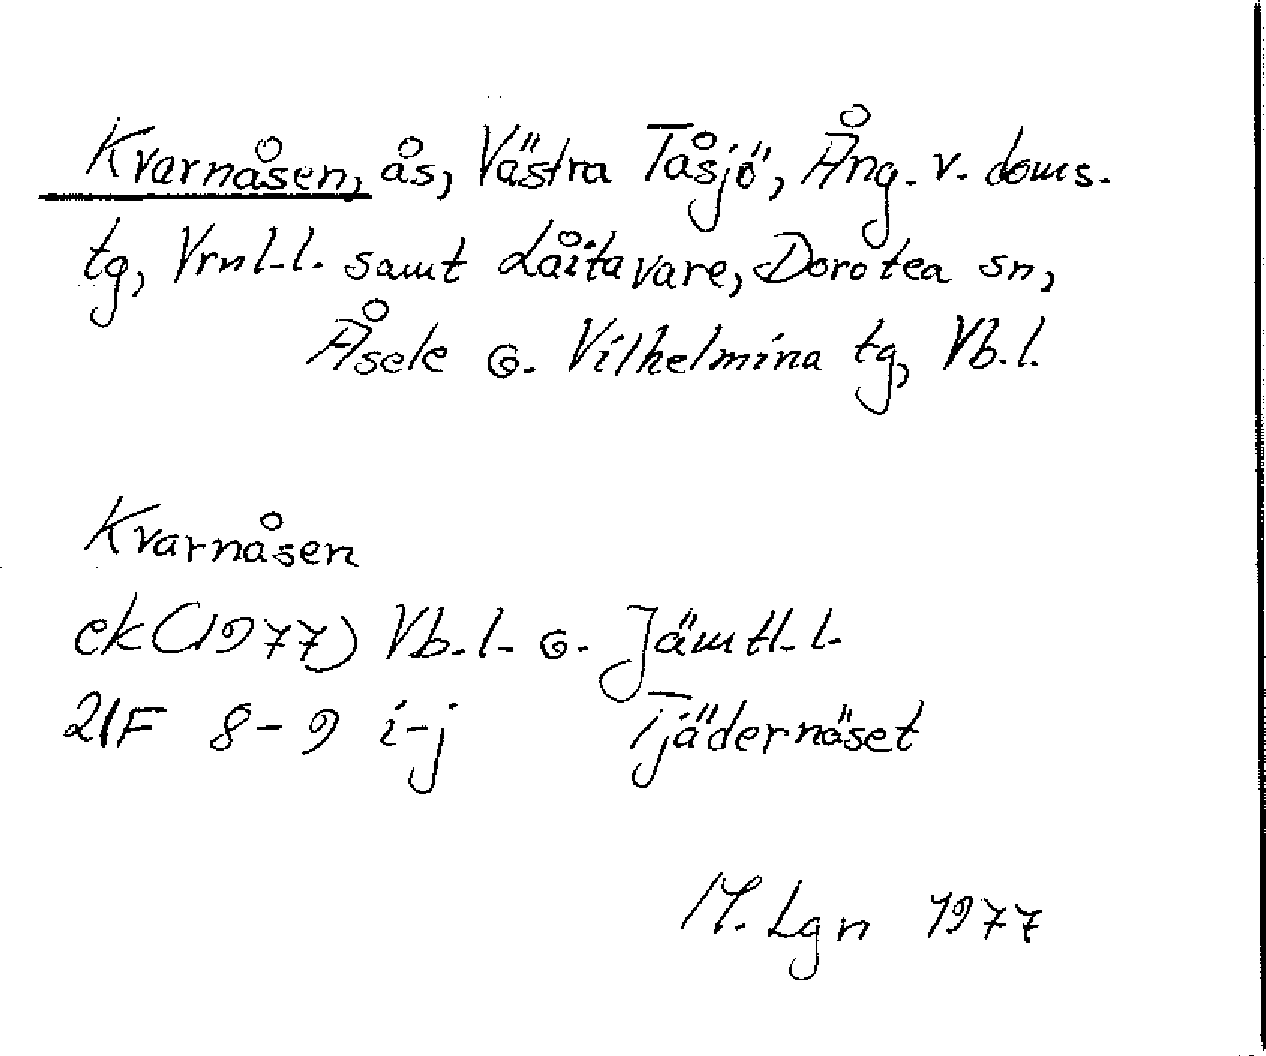 Kvarnåsen, ås, Västra Tåsjö, Ång. v. doms.
tg, Vrnl.l. samt Låitavare, Dorotea sn,
Åsele o. Vilhelmina tg, Vb.l.
Kvarnåsen
ek(1977) Vb.l. o. Jämtl.l.
21F 8-9 i-j Tjädernäset
M. Lgn 1977